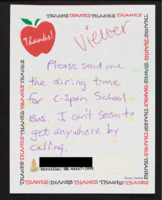 THANKS THANKS THANKS THANKS THANKS THANKS
Thanks!
Viewer
Please send me
the airing time
for C-Span School
Bus. I can't seem to
get anywhere by
calling.
THANKS THANKS THANKS THANKS THANKS